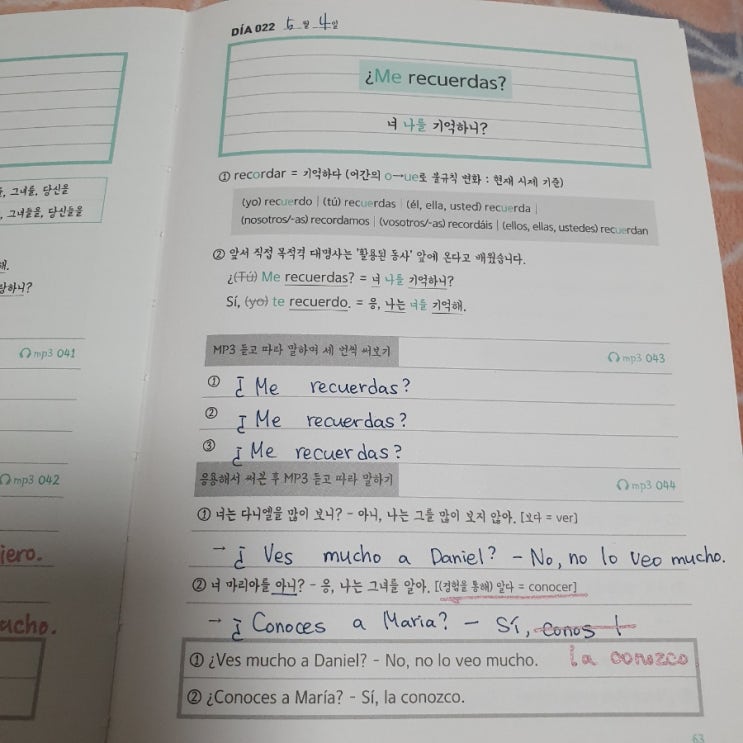 DÍA 022 5월 4일
¿Me recuerdas?
너 나를 기억하니?
, 그녀를, 당신을
, 그녀들을, 당신들을
해.
하니?
① recordar = 기억하다 (어간의 o→ue로 불규칙 변화 : 현재 시제 기준)
(yo) recuerdo | (tú) recuerdas | (él, ella, usted) recuerda |
(nosotros/-as) recordamos | (vosotros/-as) recordáis | (ellos, ellas, ustedes) recuerdan
② 앞서 직접 목적격 대명사는 '활용된 동사' 앞에 온다고 배웠습니다.
¿(Tú) Me recuerdas? = 너 나를 기억하니?
Sí, (yo) te recuerdo. = 응, 나는 너를 기억해.
mp3 041
MP3 듣고 따라 말하며 세 번씩 써보기
mp3 043
① ¿ Me recuerdas?
② ¿ Me recuerdas?
③ ¿ Me recuerdas?
mp3 042
응용해서 써본 후 MP3 듣고 따라 말하기
mp3 044
① 너는 다니엘을 많이 보니? - 아니, 나는 그를 많이 보지 않아. [보다 = ver]
iero.
→ ¿ Ves mucho a Daniel? - No, no lo veo mucho.
② 너 마리아를 아니? - 응, 나는 그녀를 알아. [(경험을 통해) 알다 = conocer]
ucho.
→ ¿ Conoces a María? - Sí, conos
la conozco
① ¿Ves mucho a Daniel? - No, no lo veo mucho.
② ¿Conoces a María? - Sí, la conozco.
63